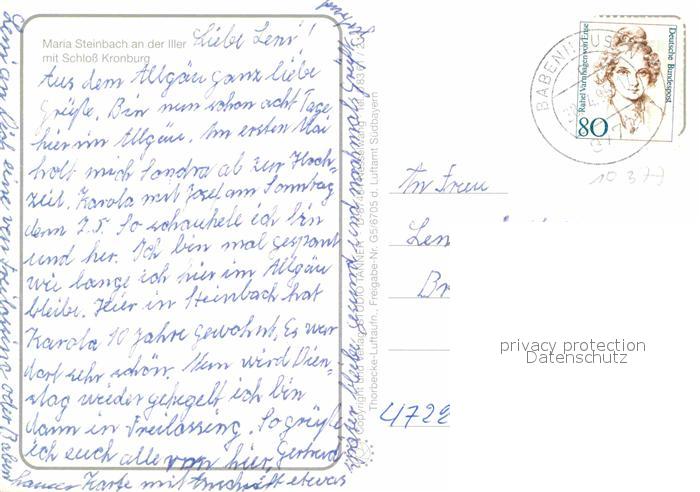 Maria Steinbach an der Iller
mit Schloß Kronburg
Liebe Leni!
Aus dem Allgäu ganz liebe
Grüße. Bin nun schon acht Tage
hier im Allgäu. Am ersten Mai
holt mich Sandra ab zur Hoch-
zeit. Karola mit Josef am Sonntag
dem 7.5. So schaukele ich hin
und her. Ich bin mal gespannt
wie lange ich hier im Allgäu
bleibe. Hier in Steinbach hat
Karola 10 Jahre gewohnt, Es war
dort sehr schön. Nun wird Dien-
stag wieder gekegelt ich bin
dann in Freilassing. So grüße
ich euch alle von hier. Gertrud
Karte mit Anschrift etwas
später bleibe gesund und nochmals Grüße
Leni an Dich eine von Freilassing oder Baben
Thorbecke-Luftaufn., Freigabe Nr. G5/6705 d. Luftamt Südbayern
BABENHAUSEN
Rahel Varnhagen von Ense
Deutsche Bundespost
80
10 377
An Frau
Len
Br
4722
privacy protection
Datenschutz